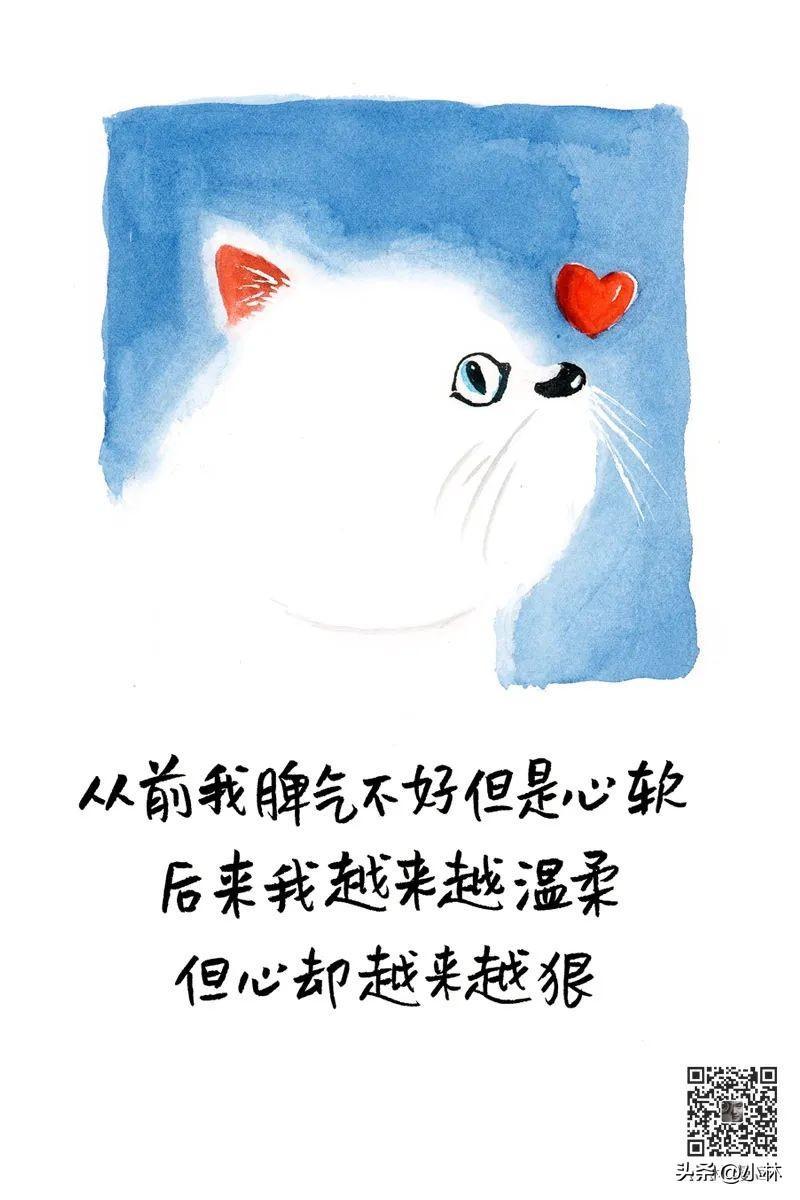 从前我脾气不好但是心软
后来我越来越温柔
但心却越来越狠
头条@小林